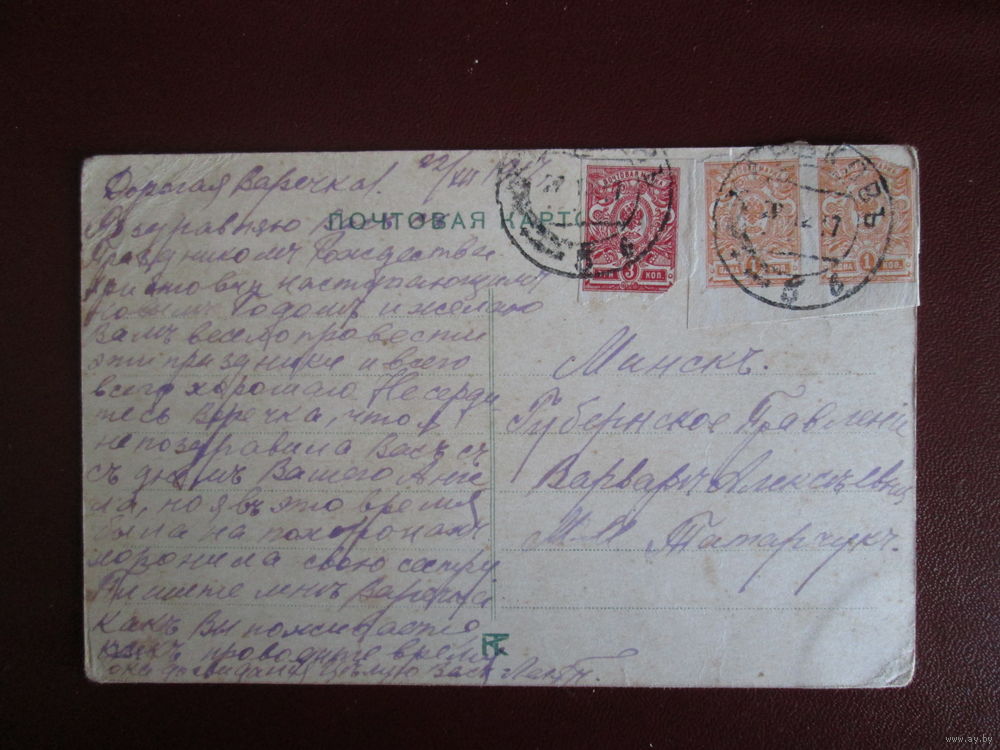 Дорогая Варечка!
22/XII 17
ПОЧТОВАЯ КАРТО
Поздравляю Васъ съ
Праздникомъ Рождества
наступающимъ
Новымъ Годомъ и желаю
Вамъ весело провести
эти праздники и всего
всего хорошаго Не серди
тесь Варечка, что я
не поздравила Васъ съ
съ днемъ Вашего Анге
ла, но я въ это время
была на похоронахъ
хоронила свою сестру
Пишите мнѣ Варечка
какъ Вы поживаете
какъ проводите время
до свиданія Цѣлую Васъ
Минскъ.
Губернское Правленіе
Варварѣ Алексѣевнѣ
Татарчукъ.
ПОЧТОВАЯ МАРКА
3
ТРИ КОП.
1
ОДНА КОП.
ОДНА 1 КОП.
www.ay.by